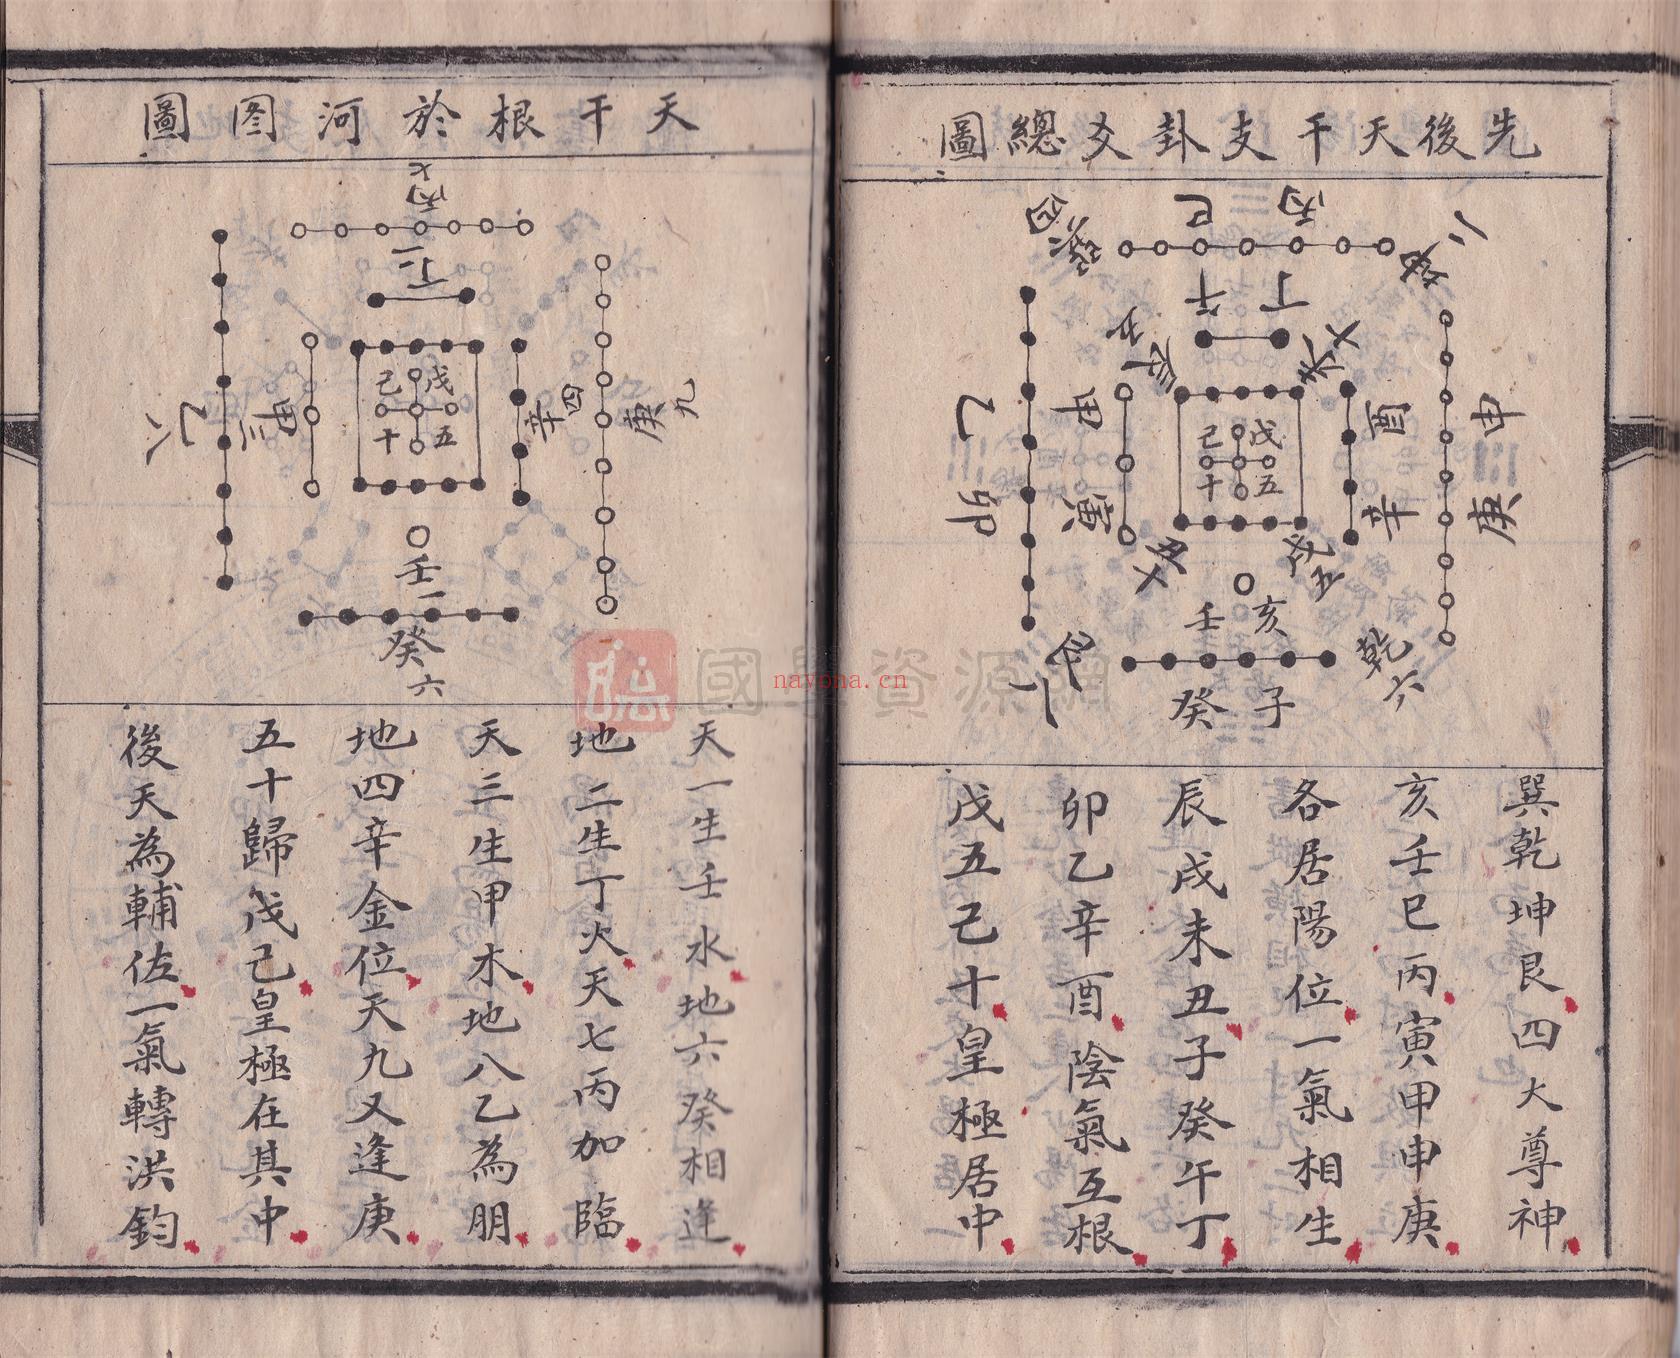 先後天干支卦爻總圖
丙
巳
巽四
坤二
丁
午
辰五
未七
乙
卯
甲
寅
戊五
己十
酉
辛
申
庚
丑十
戌五
壬
亥
艮八
乾六
癸
子
巽乾坤艮四大尊神
亥壬巳丙寅甲申庚
各居陽位一氣相生
辰戌未丑子癸午丁
卯乙辛酉陰氣互根
戊五己十皇極居中
天干根於河图圖
丙七
丁二
乙八
甲三
戊五
己十
辛四
庚九
壬一
癸六
天一生壬水地六癸相逢
地二生丁火天七丙加臨
天三生甲木地八乙為朋
地四辛金位天九又逢庚
五十歸戊己皇極在其中
後天為輔佐一氣轉洪鈞
國學資源網
nayona.cn